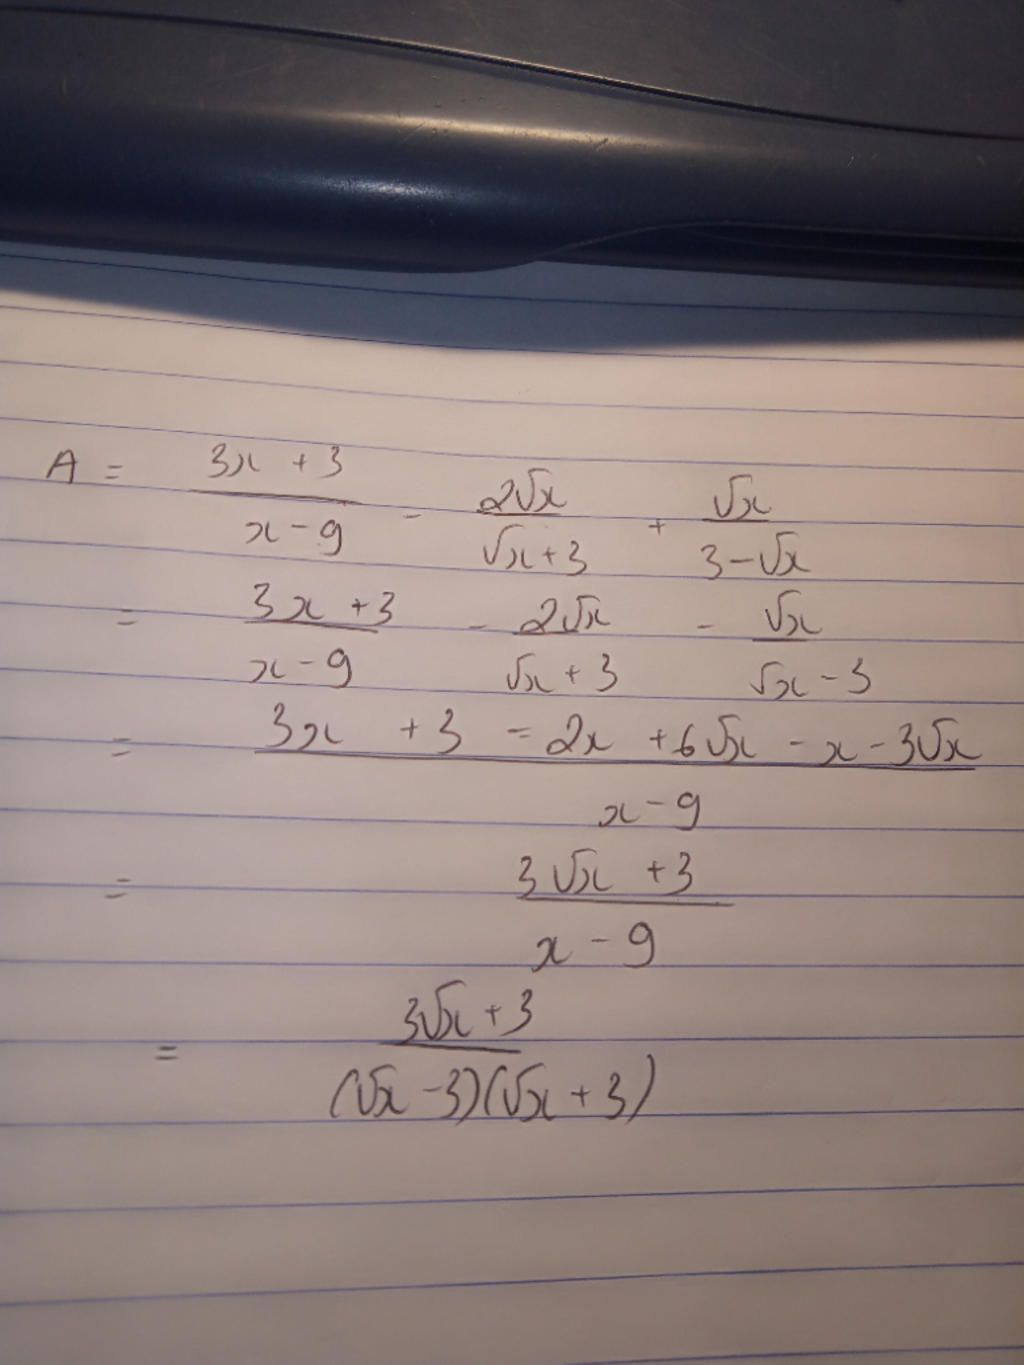 A = (3x + 3)/(x - 9) - (2√x)/(√x + 3) + (√x)/(3 - √x)
= (3x + 3)/(x - 9) - (2√x)/(√x + 3) - (√x)/(√x - 3)
= (3x + 3 - 2x + 6√x - x - 3√x)/(x - 9)
= (3√x + 3)/(x - 9)
= (3√x + 3)/((√x - 3)(√x + 3))